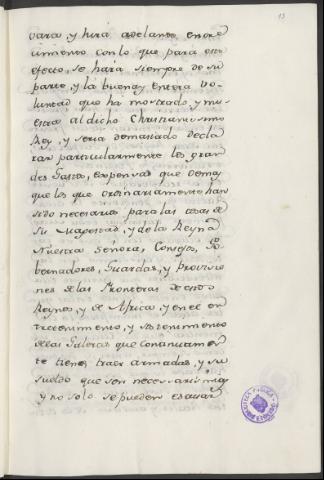 13
vara, y hira adelante, en ore
cimiento con lo que para este
efecto, se hará siempre de su
parte, y la buena y entera vo-
luntad que ha mostrado, y mu-
estra al dicho Christianisimo
Rey, y seria demasiado decla
rar particularmente los gran
des Gastos, expensas que demas
que los que ordinariamente han
sido necesarios para las cosas de
Su Magestad, y de la Reyna
Nuestra Señora, Consejos, Go
bernadores, Guardas, y provisio
nes de las Fronteras de estos
Reynos, y de Africa, y en el en
tretenimiento, y sostenimiento
de las Galeras que continuamen
te tiene, traer armadas, y su
sueldo que son necesarios
y no solo se pueden escusar